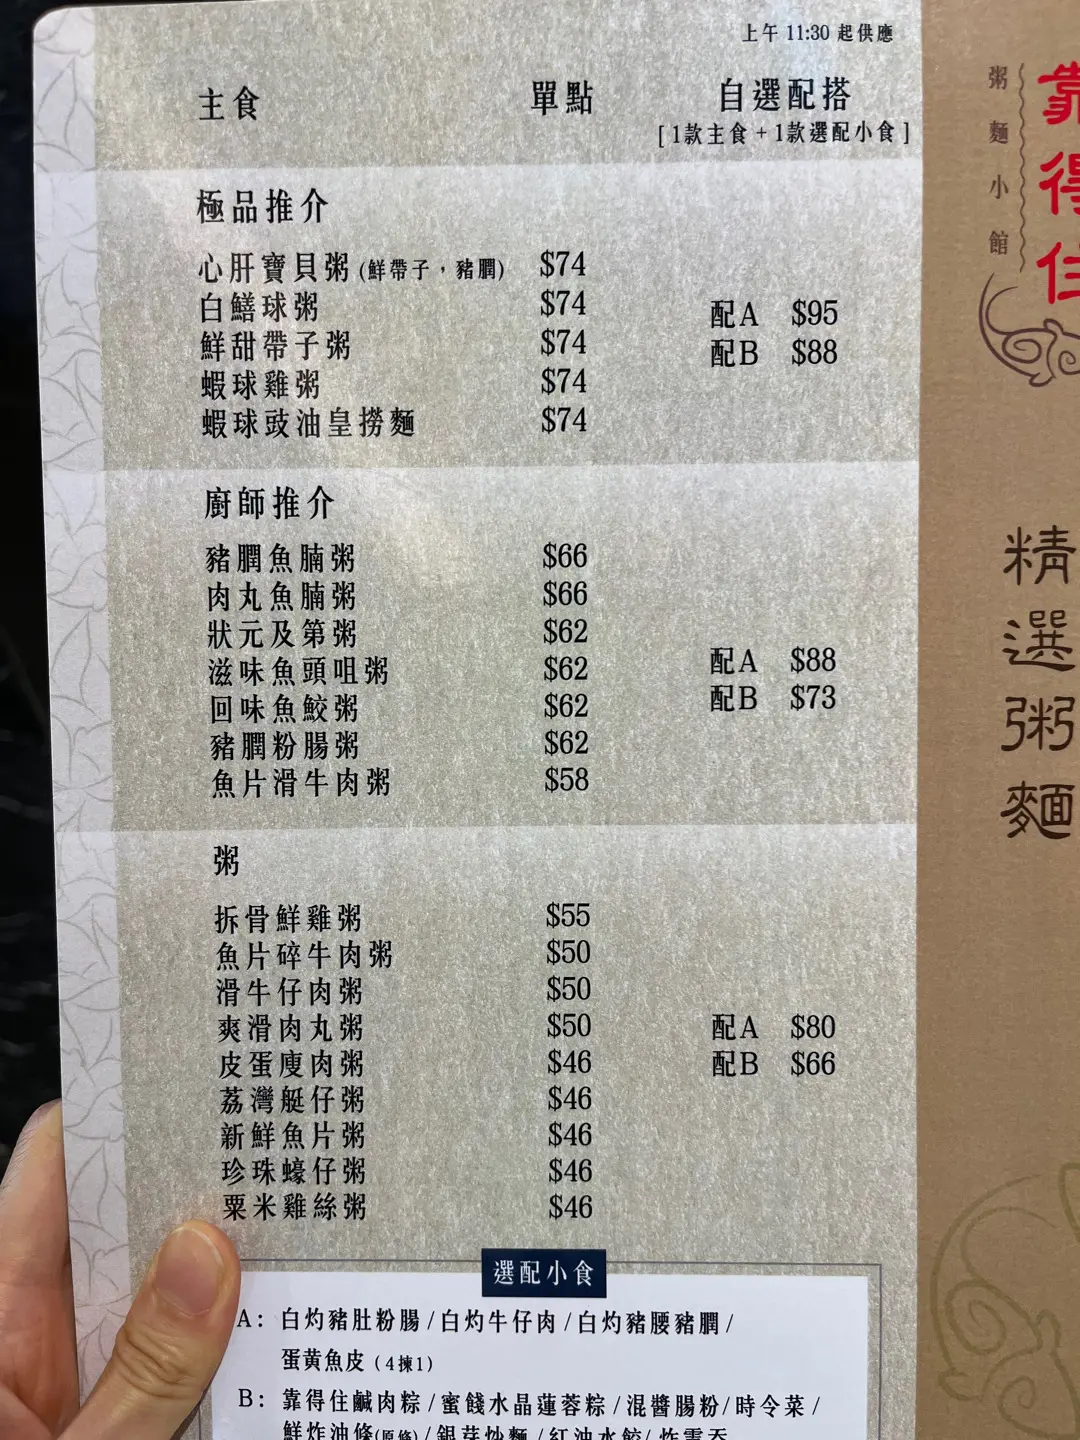 上午 11:30 起供應
主食 單點 自選配搭
[ 1款主食 + 1款選配小食 ]
極品推介
心肝寶貝粥 (鮮帶子，豬膶) $74
白鱔球粥 $74
鮮甜帶子粥 $74
蝦球雞粥 $74
蝦球豉油皇撈麵 $74
配A $95
配B $88
廚師推介
豬膶魚腩粥 $66
肉丸魚腩粥 $66
狀元及第粥 $62
滋味魚頭咀粥 $62
回味魚鮫粥 $62
豬膶粉腸粥 $62
魚片滑牛肉粥 $58
配A $88
配B $73
粥
拆骨鮮雞粥 $55
魚片碎牛肉粥 $50
滑牛仔肉粥 $50
爽滑肉丸粥 $50
皮蛋廋肉粥 $46
荔灣艇仔粥 $46
新鮮魚片粥 $46
珍珠蠔仔粥 $46
粟米雞絲粥 $46
配A $80
配B $66
選配小食
A: 白灼豬肚粉腸 / 白灼牛仔肉 / 白灼豬腰豬膶 /
蛋黃魚皮 (4揀1)
B: 靠得住鹹肉粽 / 蜜餞水晶蓮蓉粽 / 混醬腸粉 / 時令菜 /
鮮炸油條(原條) / 銀芽炒麵 / 紅油水餃 / 炸雲吞
粥麵小館
靠得住
精選粥麵